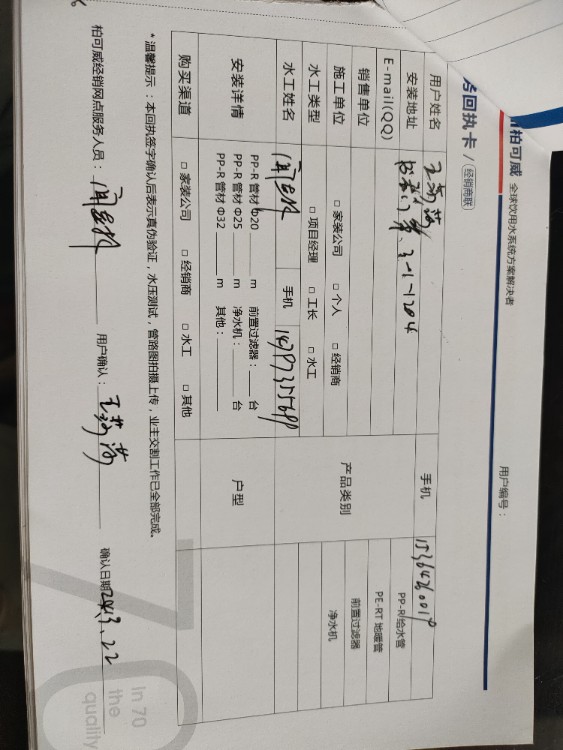 柏可威 全球饮用水系统方案解决者
用户编号：
务回执卡 / 经销商联
用户姓名 手机
安装地址
E-mail(QQ)
销售单位
施工单位 □ 家装公司 □ 个人 □ 经销商
水工类型 □ 项目经理 □ 工长 □ 水工
产品类别
PP-R给水管
PE-RT 地暖管
前置过滤器
净水机
水工姓名 手机
安装详情 PP-R 管材 Φ20 m 前置过滤器： 台
PP-R 管材 Φ25 m 净水机： 台
PP-R 管材 Φ32 m 其他：
户型
购买渠道 □ 家装公司 □ 经销商 □ 水工 □ 其他
*温馨提示：本回执签字确认后表示真伪验证，水压测试，管路图拍摄上传，业主交割工作已全部完成。
柏可威经销网点服务人员： 用户确认： 确认日期
In 70
the
quality